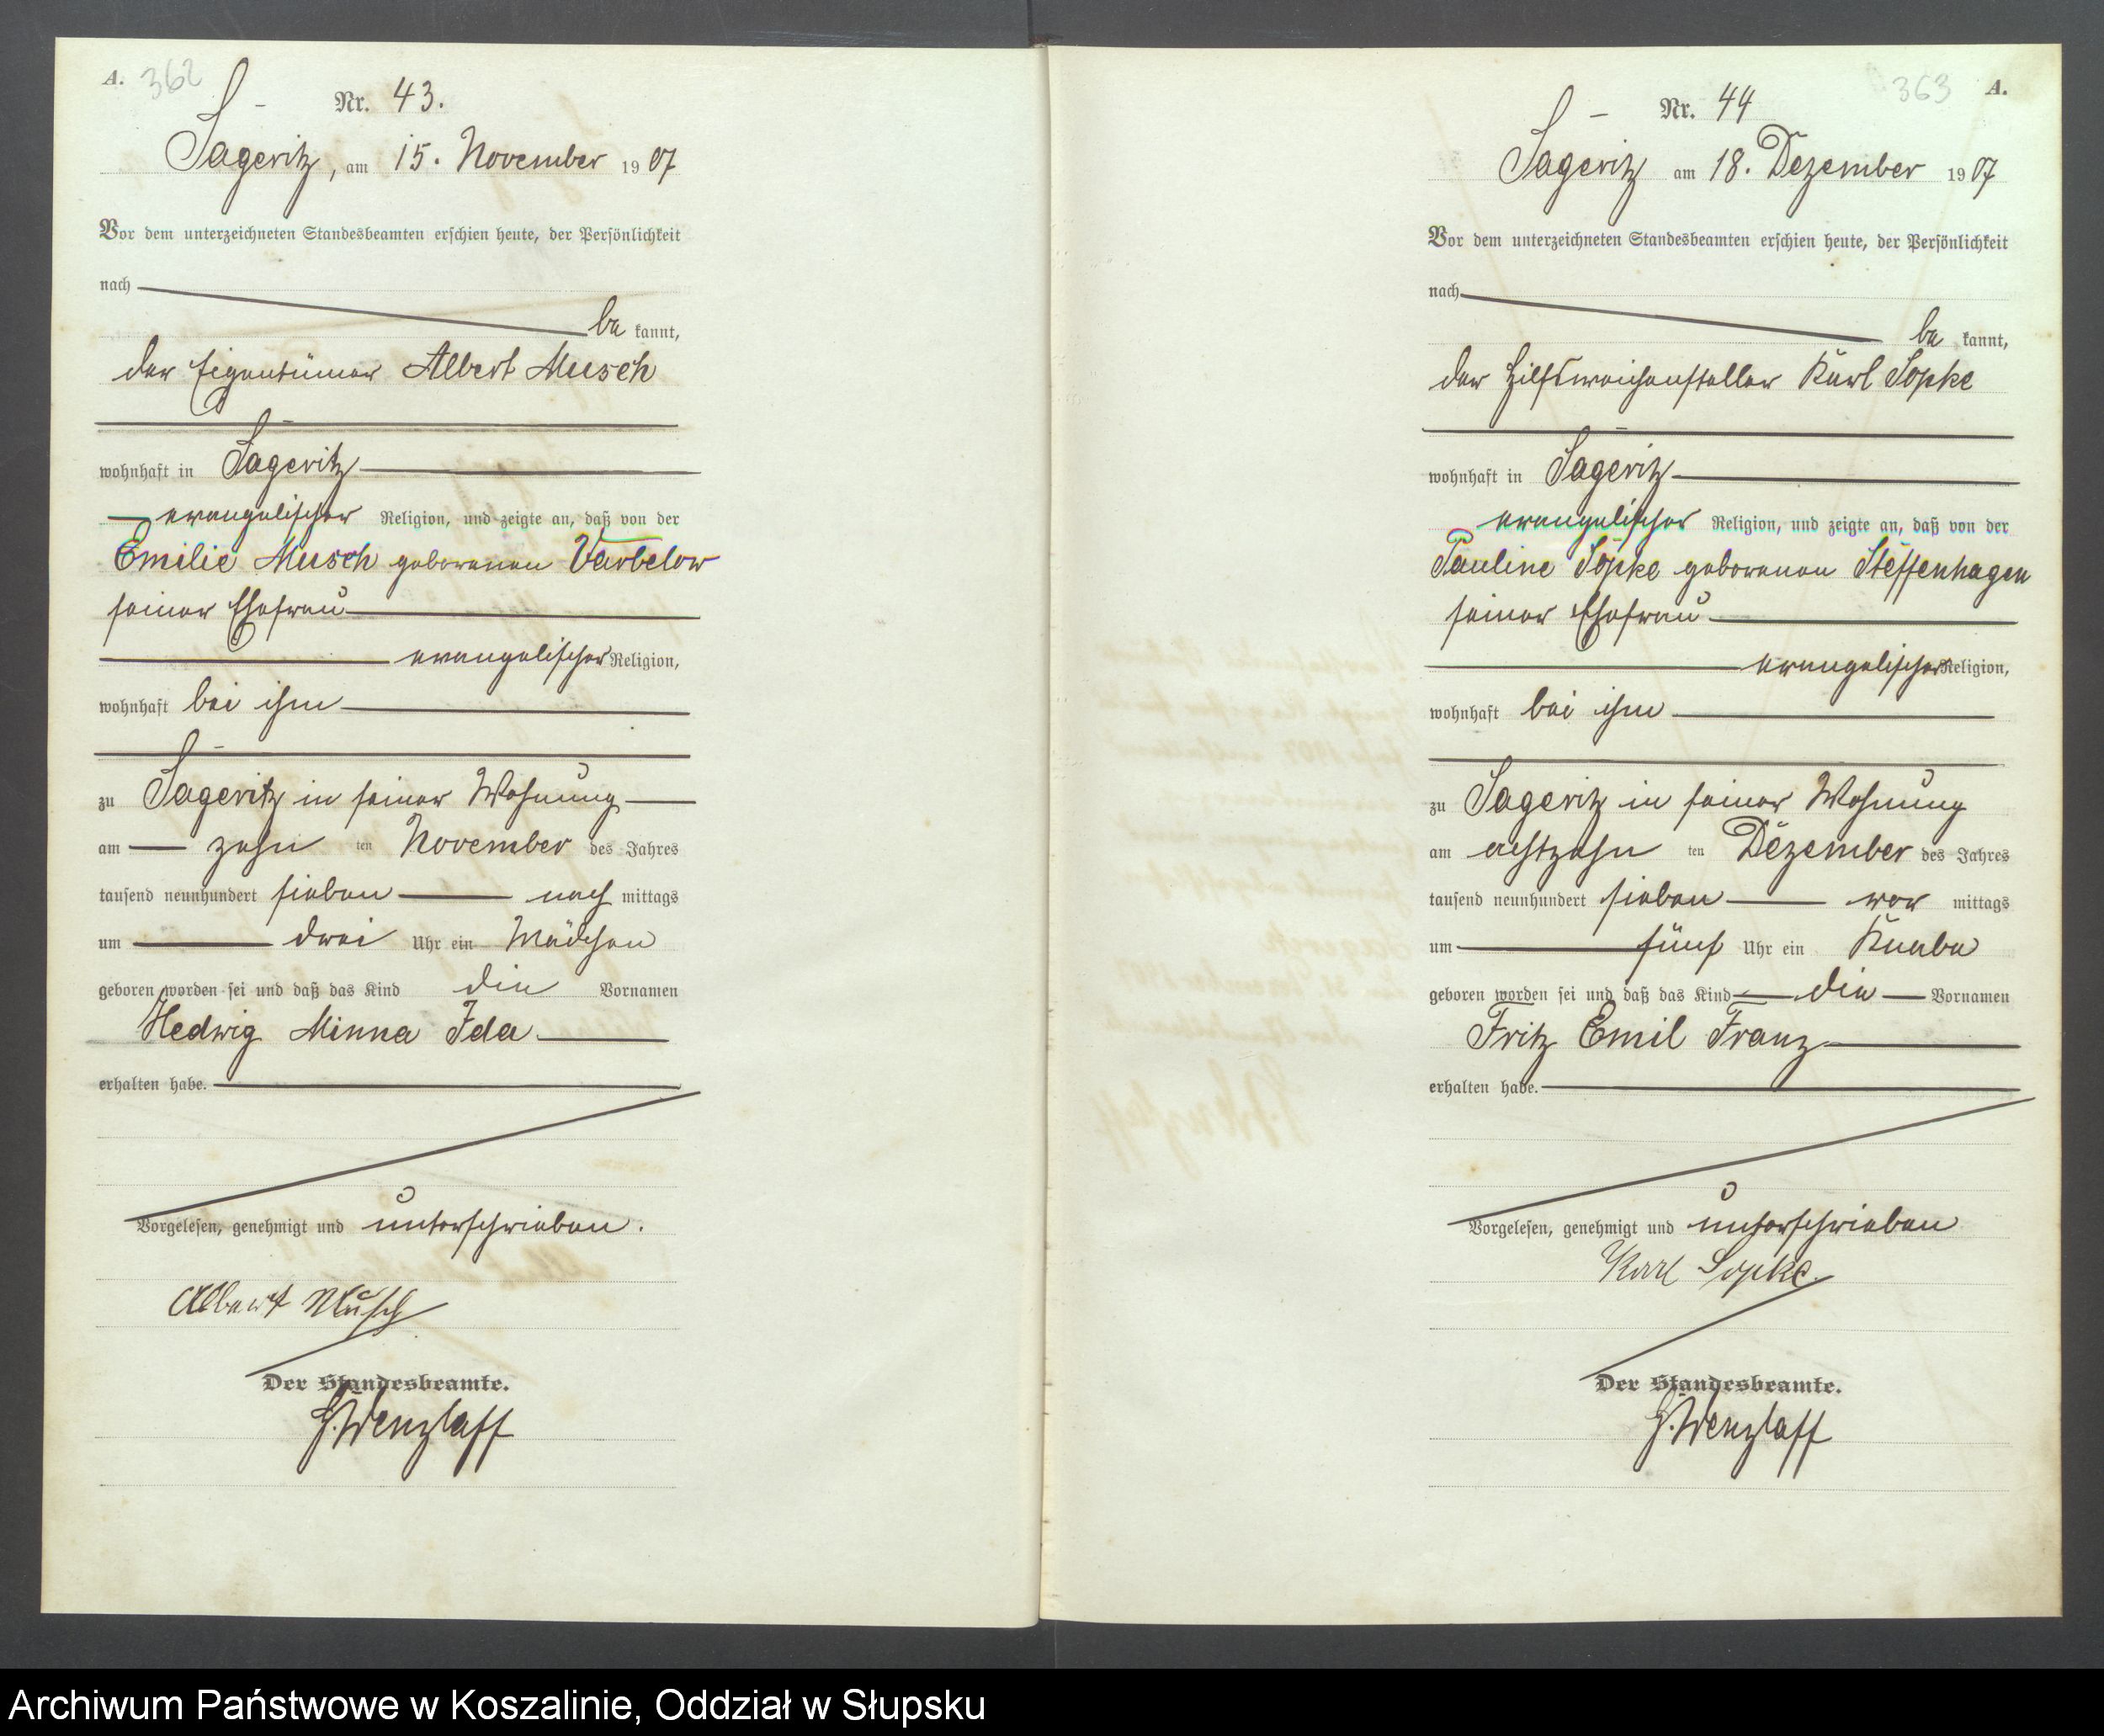 A. 362
Nr. 43.
Sageritz, am 15. November 1907
Vor dem unterzeichneten Standesbeamten erschien heute, der Persönlichkeit
nach
be kannt,
der Eigentümer Albert Musch
wohnhaft in Sageritz
evangelischer Religion, und zeigte an, daß von der
Emilie Musch geborenen Varbelow
seiner Ehefrau
evangelischer Religion,
wohnhaft bei ihm
zu Sageritz in seiner Wohnung
am zehn ten November des Jahres
tausend neunhundert sieben nach mittags
um drei Uhr ein Mädchen
geboren worden sei und daß das Kind die Vornamen
Hedwig Minna Ida
erhalten habe.
Vorgelesen, genehmigt und unterschrieben.
Albert Musch
Der Standesbeamte.
Wenzlaff
363 A.
Nr. 44
Sageritz am 18. Dezember 1907
Vor dem unterzeichneten Standesbeamten erschien heute, der Persönlichkeit
nach
be kannt,
der Hilfsweichensteller Karl Sopke
wohnhaft in Sageritz
evangelischer Religion, und zeigte an, daß von der
Pauline Sopke geborenen Steffenhagen
seiner Ehefrau
evangelischer Religion,
wohnhaft bei ihm
zu Sageritz in seiner Wohnung
am achtzehn ten Dezember des Jahres
tausend neunhundert sieben vor mittags
um fünf Uhr ein Knabe
geboren worden sei und daß das Kind die Vornamen
Fritz Emil Franz
erhalten habe.
Vorgelesen, genehmigt und unterschrieben
Karl Sopke
Der Standesbeamte.
Wenzlaff
Archiwum Państwowe w Koszalinie, Oddział w Słupsku